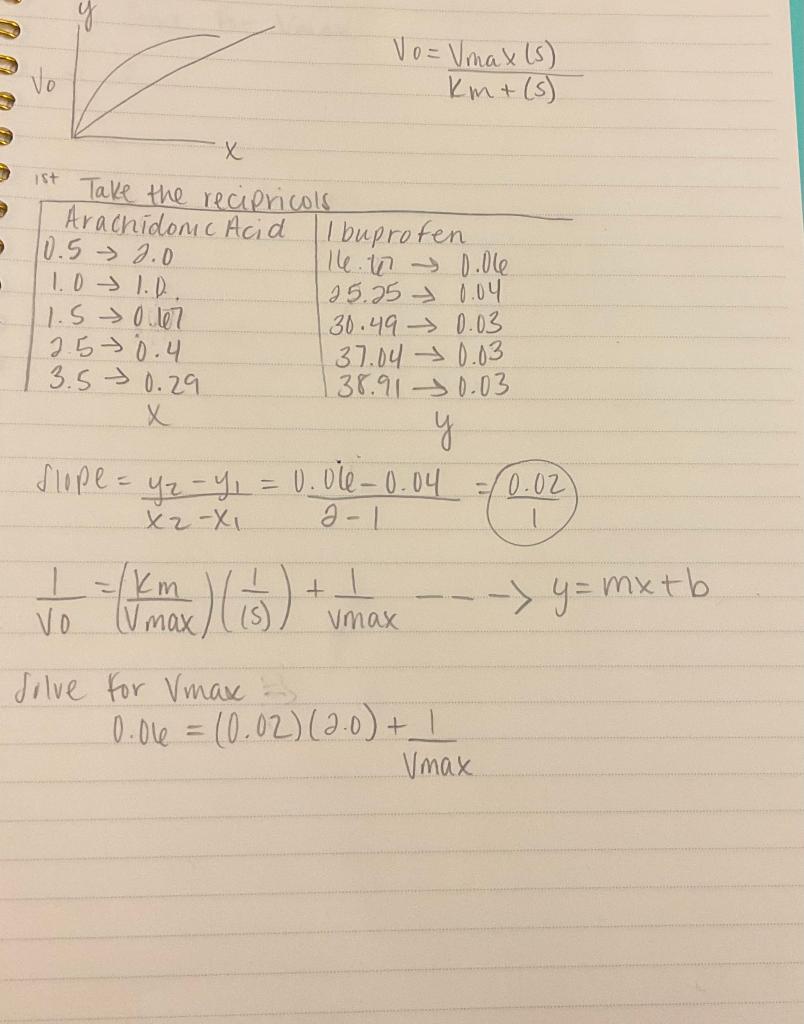 y
Vo
x
Vo = Vmax (s)
Km + (s)
1st Take the recipricols
Arachidonic Acid | Ibuprofen
0.5 → 2.0 | 16.67 → 0.06
1.0 → 1.0 | 25.25 → 0.04
1.5 → 0.67 | 30.49 → 0.03
2.5 → 0.4 | 37.04 → 0.03
3.5 → 0.29 | 38.91 → 0.03
x y
Slope = y2 - y1 = 0.06 - 0.04 = 0.02
x2 - x1 2 - 1 1
1 = (Km) (1) + 1 ---> y = mx + b
Vo (Vmax) (s) Vmax
Solve for Vmax
0.06 = (0.02)(2.0) + 1
Vmax